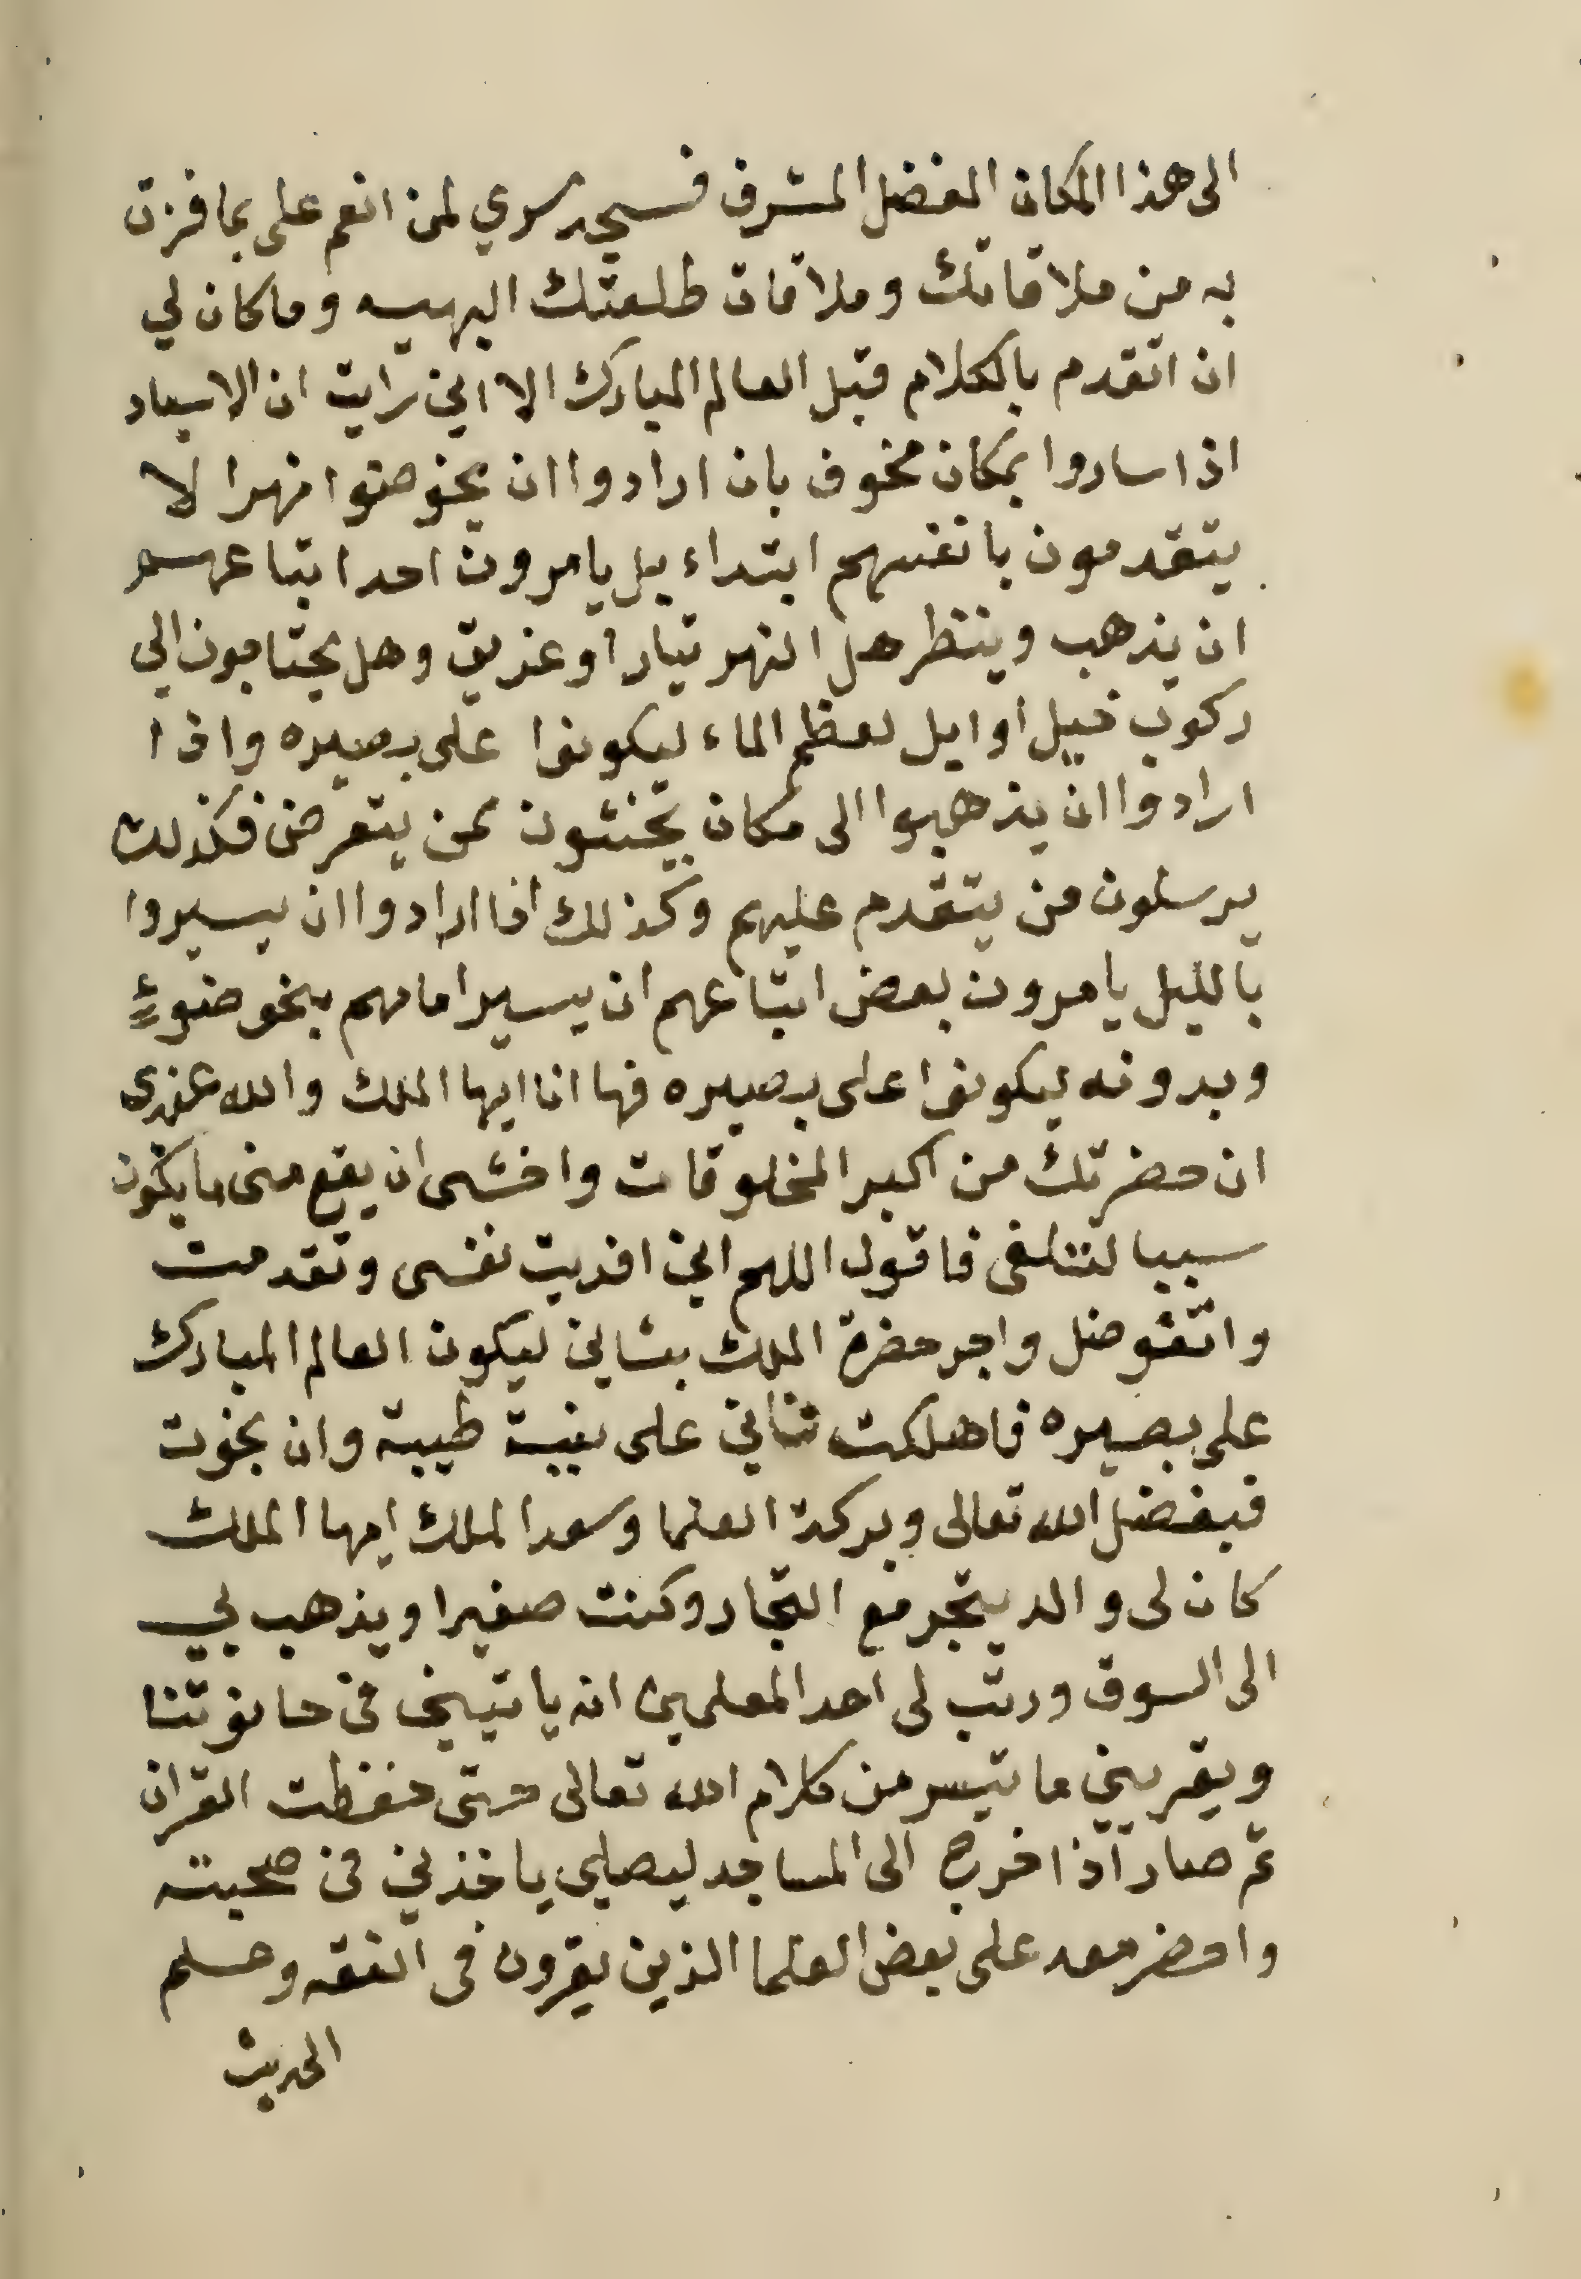 الى هذا المكان المفضل المشرف فسيحد سري لمن انعم على بما فزت
به من ملاقاتك وملاقات طلعتك البهيه وما كان لي
ان اتقدم بالكلام قبل العالم المبارك الا اني رايت ان الاسياد
اذا ساروا بمكان مخوف بان ارادوا ان يخوضوا نهرا لا
يتقدمون بانفسهم ابتداء بل يامرون احد اتباعهم
ان يذهب وينظر هل النهر تيار او غريق وهل يحتاجون الي
ركوب خيل او ابل لعظم الماء ليكونوا على بصيره واذا
ارادوا ان يذهبوا الى مكان يخشون ممن يتعرض فكذلك
يرسلون من يتقدم عليهم وكذلك اذا ارادوا ان يسيروا
بالليل يامرون بعض اتباعهم ان يسير امامهم بنحو ضوء
وبدونه ليكونوا على بصيره فها انا ايها الملك والله عندى
ان حضرتك من اكبر المخلوقات واخشى ان يقع منى ما يكون
سببا لتلفى فاقول اللهم اني افديت نفسى وتقدمت
واتفوضل واجر حضرة الملك بشانى ليكون العالم المبارك
على بصيره فاهلكت ثنانى على نيبة طيبة وان نجوت
فبفضل الله تعالى وبركة العلما وسعد الملك ايها الملك
كان لى والد يتجر مع التجار وكنت صغيرا ويذهب بي
الى السوق ورتب لى احد المعلمين انه ياتينى فى حانوتنا
ويقرينى ما تيسر من كلام الله تعالى حتى حفظت القران
ثم صار اذا خرج الى المساجد ليصلى ياخذنى فى صحبته
واحضر معه على بعض العلما الذين يقرون فى الفقه وعلم
الحديث